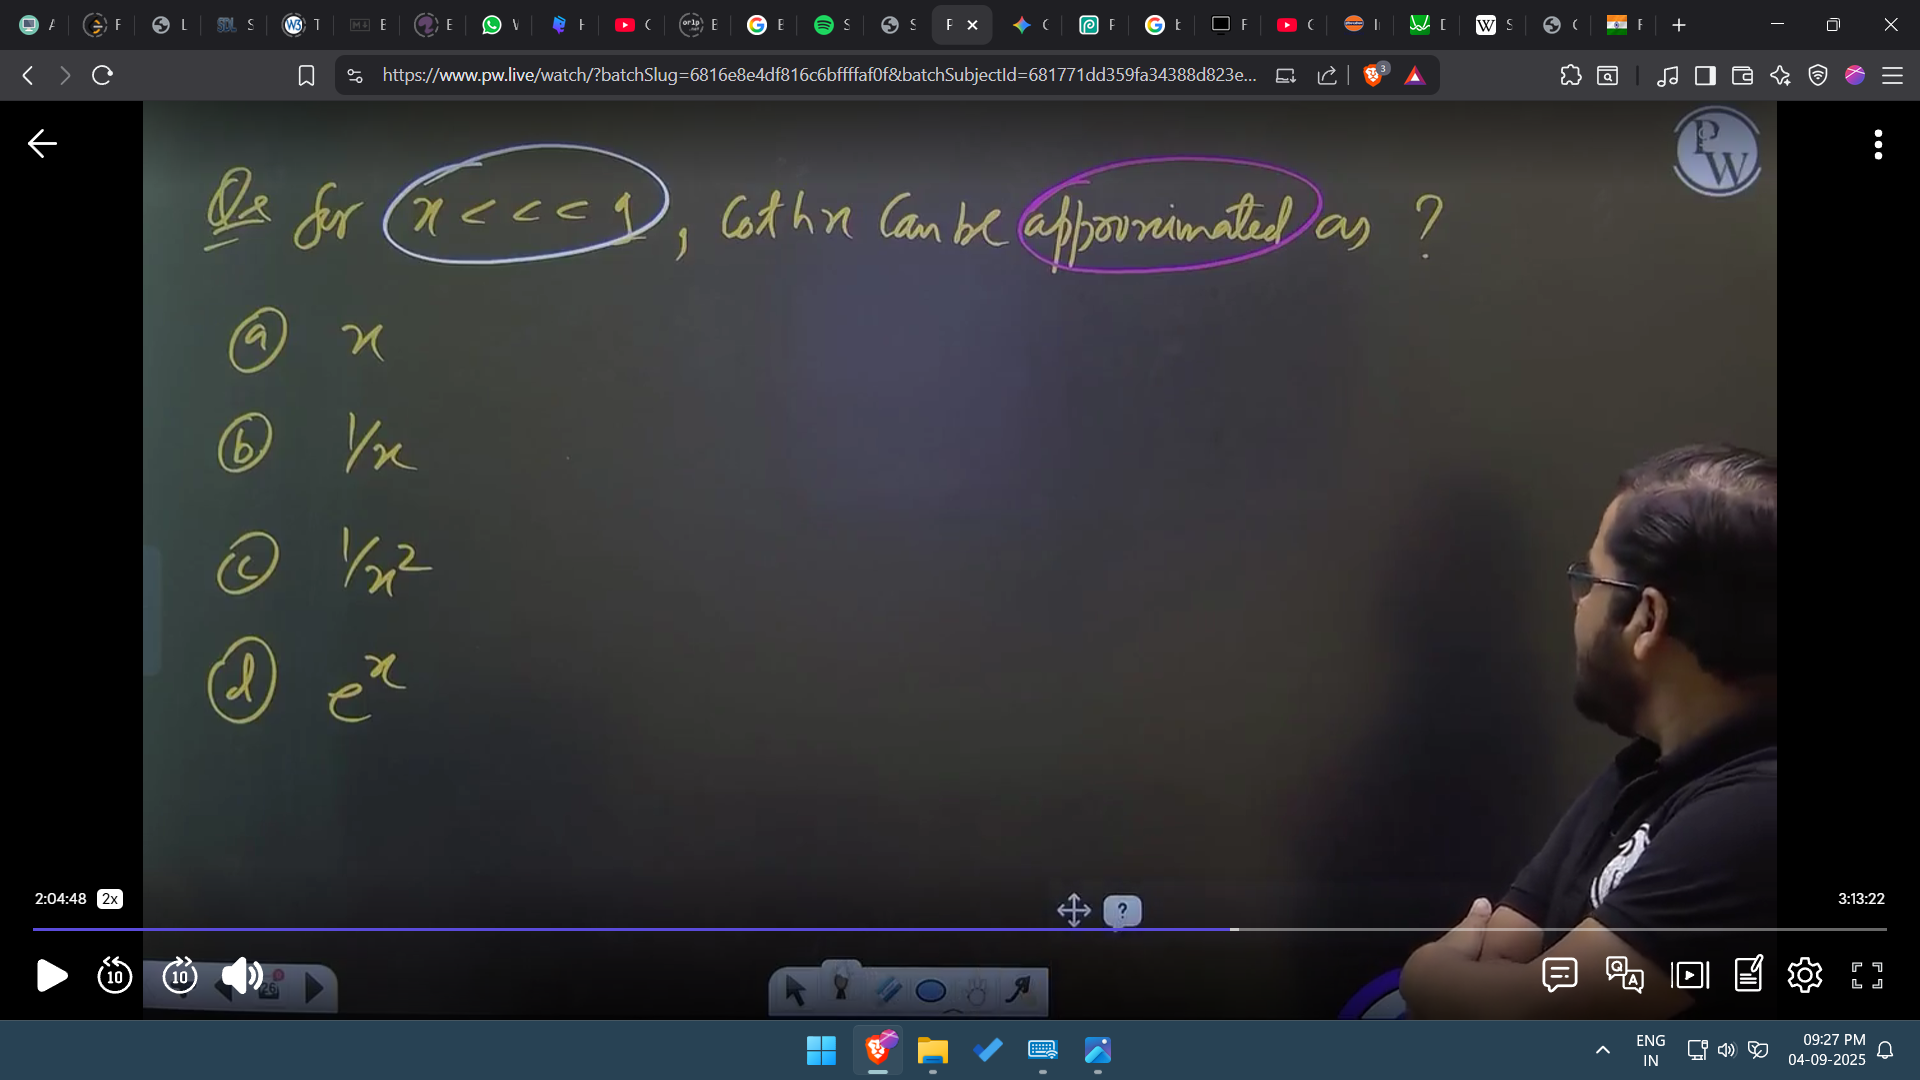 A F L S T E E W H C E E S S F C F t F C I D S C F
https://www.pw.live/watch/?batchSlug=6816e8e4df816c6bffffaf0f&batchSubjectId=681771dd359fa34388d823e... 3
PW
Qs for x <<< 1, Cothx Can be approximated as ?
(a) x
(b) 1/x
(c) 1/x²
(d) eˣ
2:04:48 2x 3:13:22
?
10 10 26
Q A
ENG 09:27 PM
IN 04-09-2025